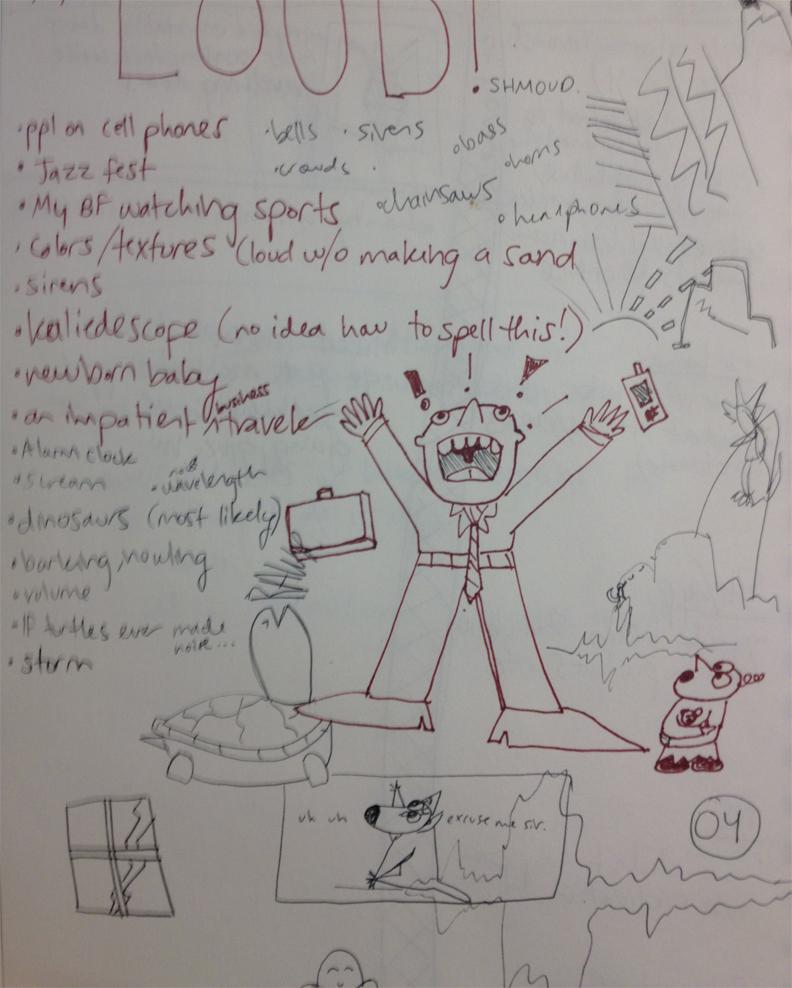 LOUD!
SHMOUD.
• ppl on cell phones • bells • sirens
• bass
• Jazz fest • crowds
• horns
• My BF watching sports • chainsaws
• headphones
• colors/textures (loud w/o making a sand
• sirens
• kaliedescope (no idea how to spell this!)
• newborn baby
• an impatient business travele
• Alarm clock
• scream • wavelength
• dinosaurs (most likely)
• barking, howling
• volume
• IF turtles ever made
noise...
• storm
uh uh excuse me sir.
04